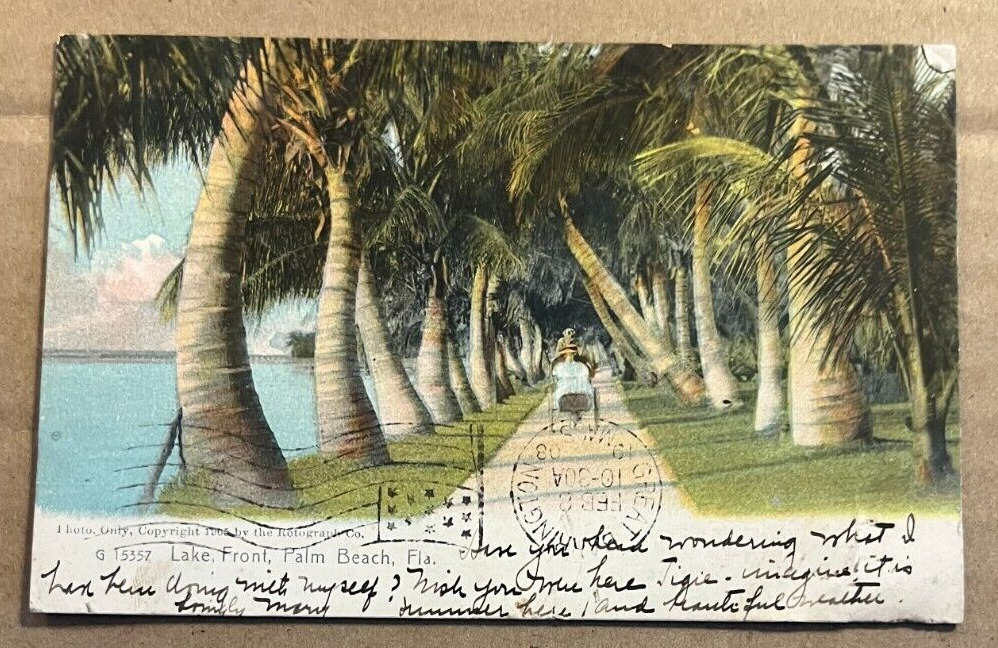 Photo. Only, Copyright 1905 by the Rotograph Co.
G 15357 Lake Front, Palm Beach, Fla.
have you had wondering what I
have been doing with myself? Wish you were here Tigie - imagine it is
summer here and beautiful weather.
Lovingly Mary
FEB 8
10-30A